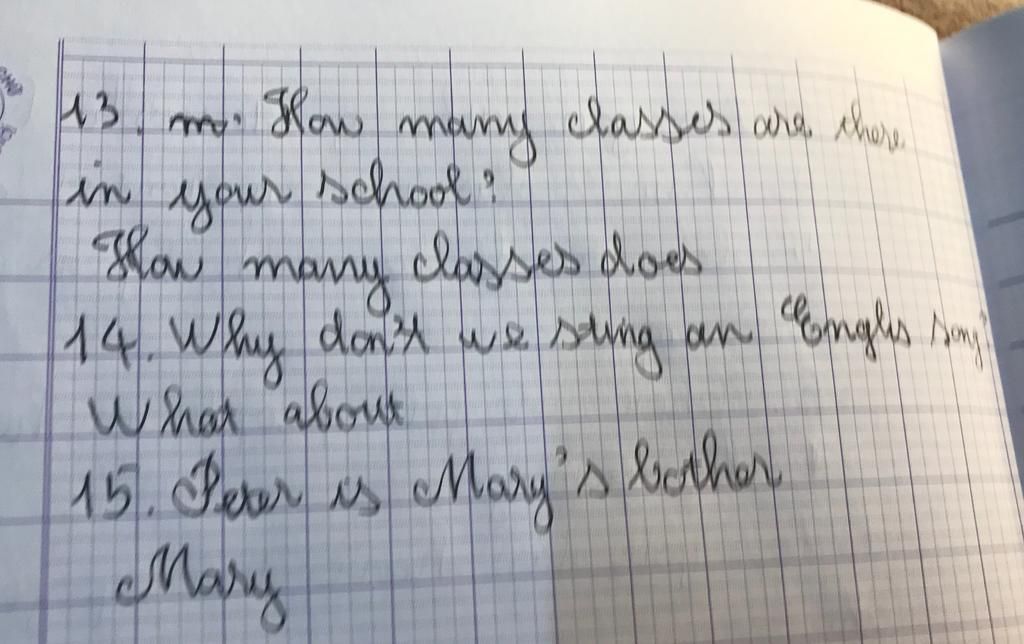 13. m. How many classes are there
in your school?
How many classes does
14. Why don't we sting an Englis song
What about
15. Peter is Mary's bother
Mary